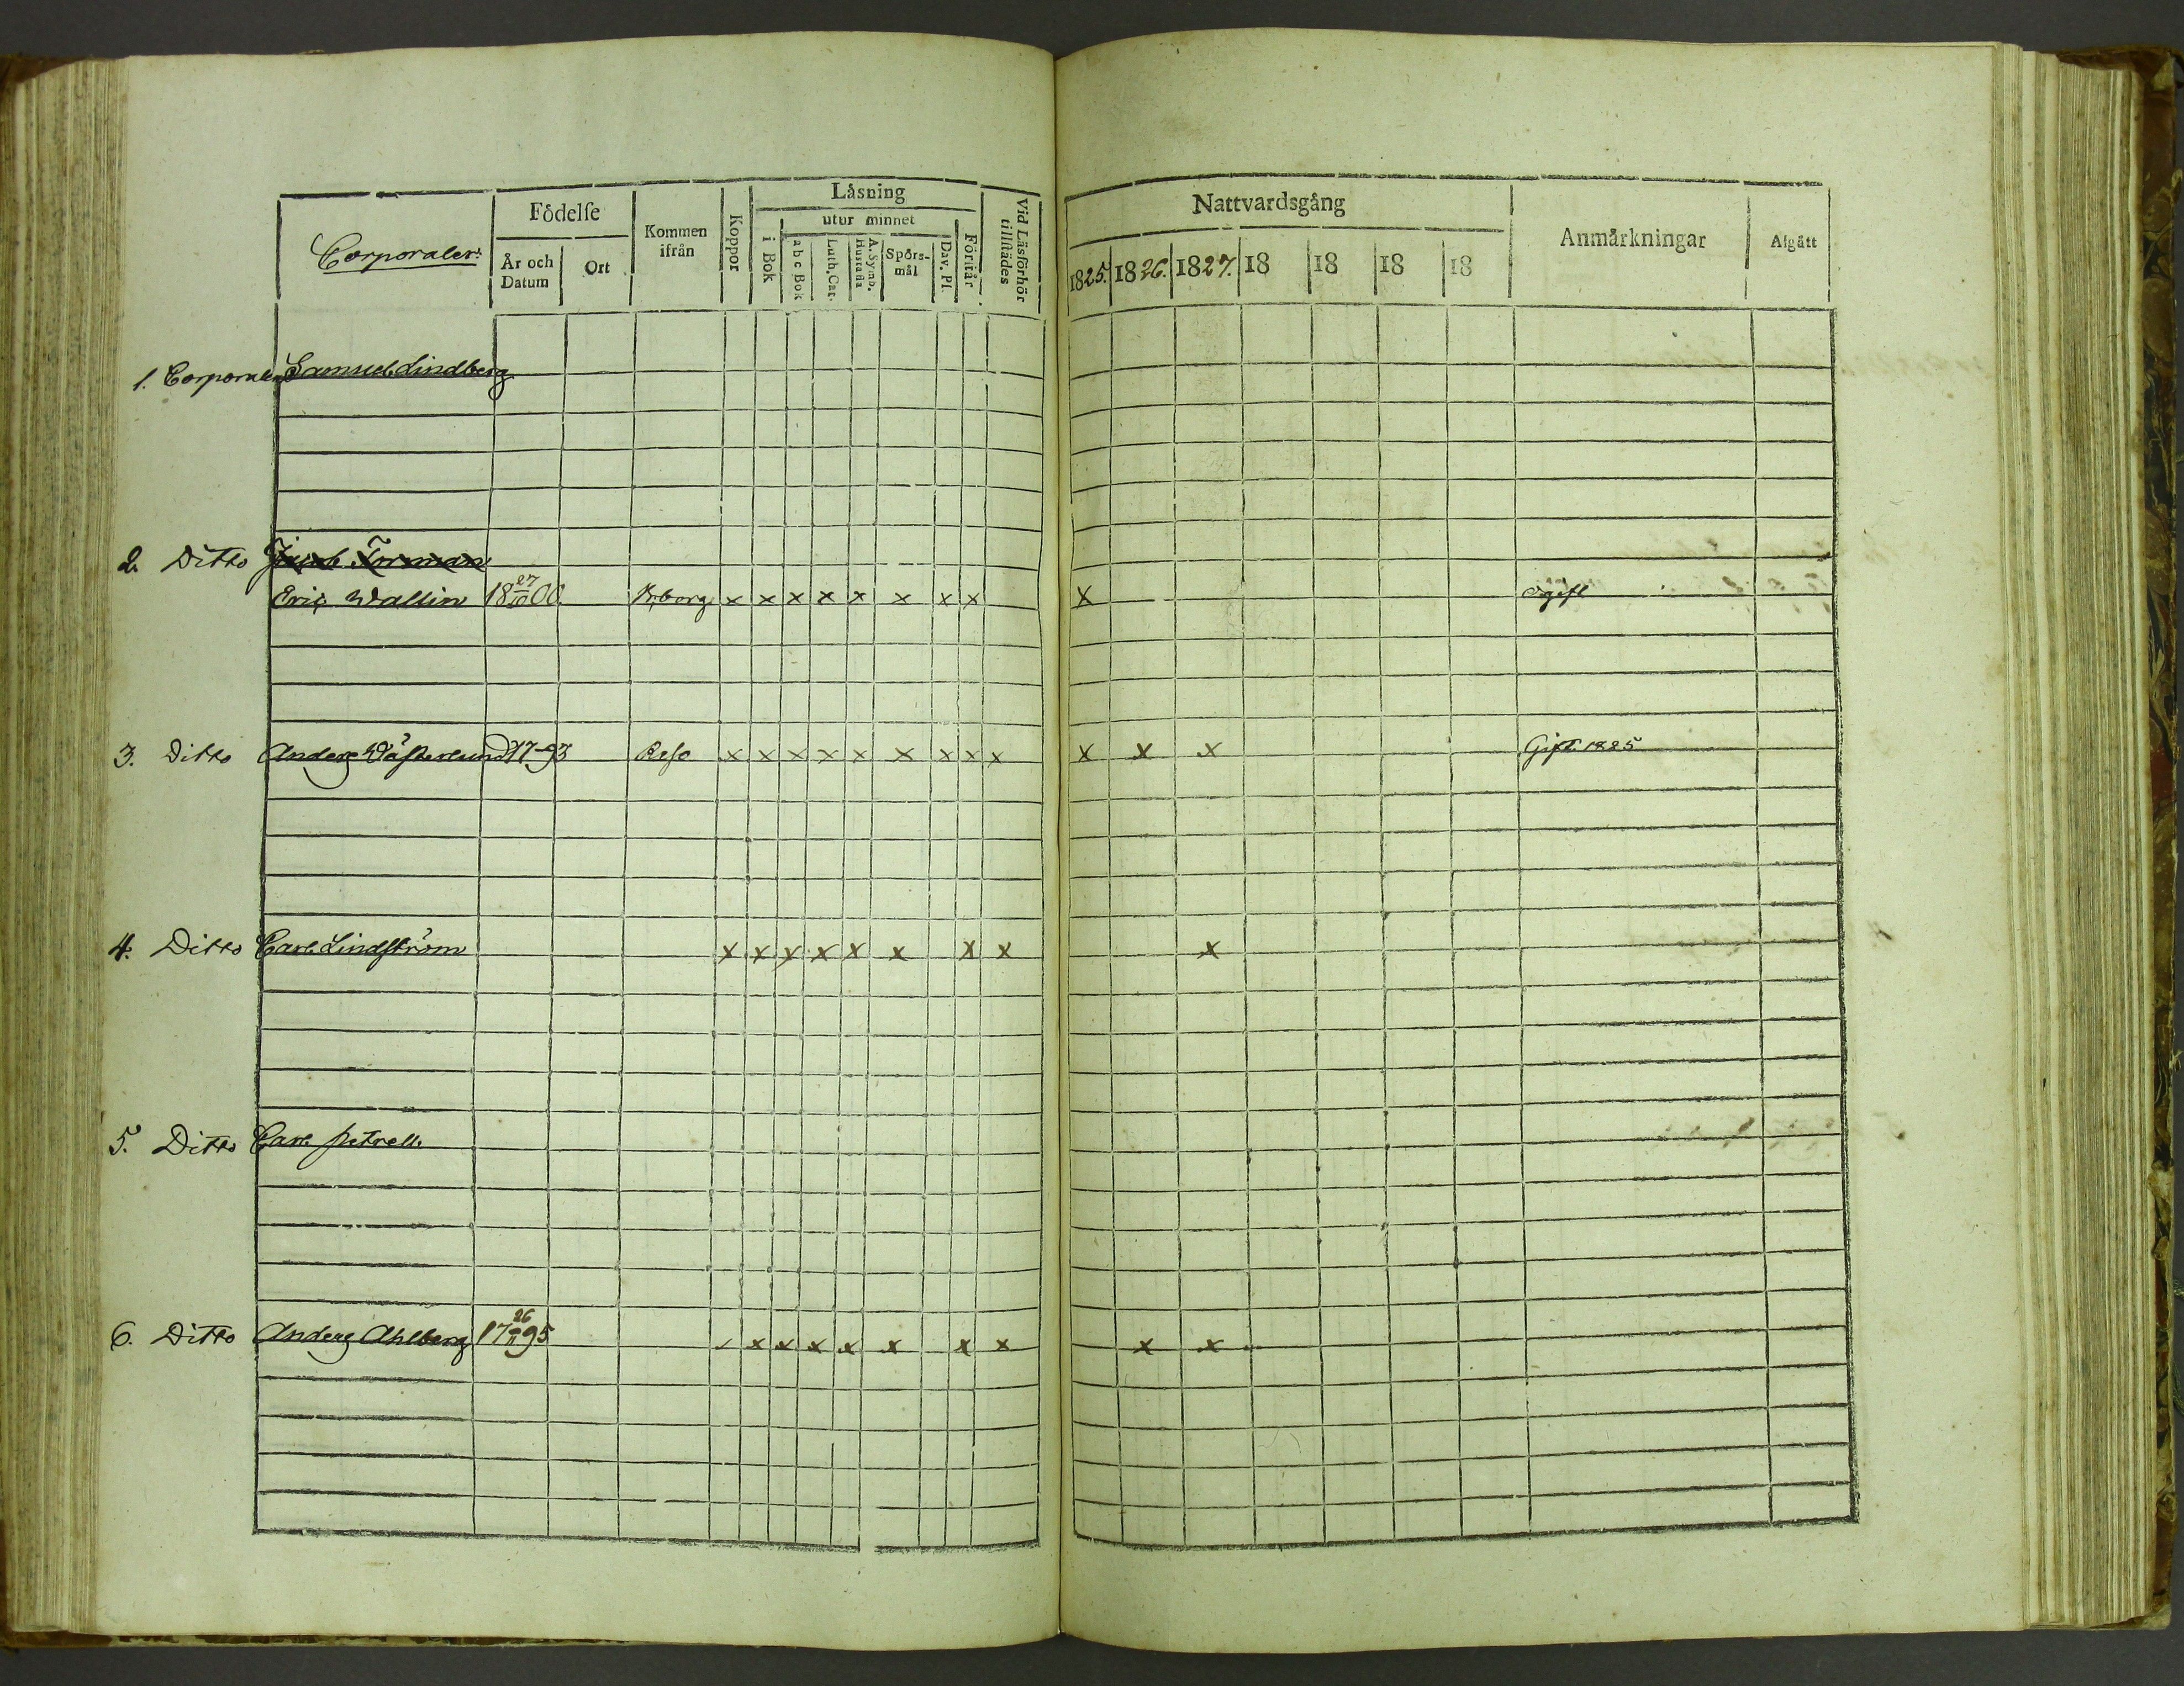 Corporaler:
Födelſe
År och
Datum
Ort
Kommen
ifrån
Koppor
Läsning
utur minnet
i Bok
a b c Bok
Luth. Cat.
A. Symb.
Huſtafla
Spörs-
mål
Dav. Pſ.
Förſtår
Vid Läsförhör
tillſtädes
Nattvardsgång
1825. 1826. 1827. 18 18 18 18
Anmärkningar
Afgått
1. Corporalen Samuel Lindberg
2. Ditto Jacob Forsman
Eric Wallin 18 27/10 00. x x x x x x x x x ogift
3. Ditto Anders Wäſterlund 17-93 x x x x x x x x x x x x Gift 1825
4. Ditto Carl Lindſtröm x x x x x x x x x
5. Ditto Carl Petrell
6. Ditto Anders Ahlberg 17 26/11 95 x x x x x x x x x x